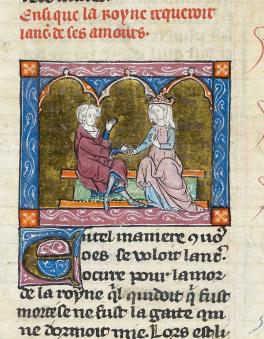 Ensi que la royne requeroit
lanc̃. de ses amours.
En tel maniere quo9
oes se uoloit lanc̃.
ocirre pour lamor
de la royne q̃l quidoit q̃ fust
morte se ne fust la gaite qui
ne dormoit mie. Lors